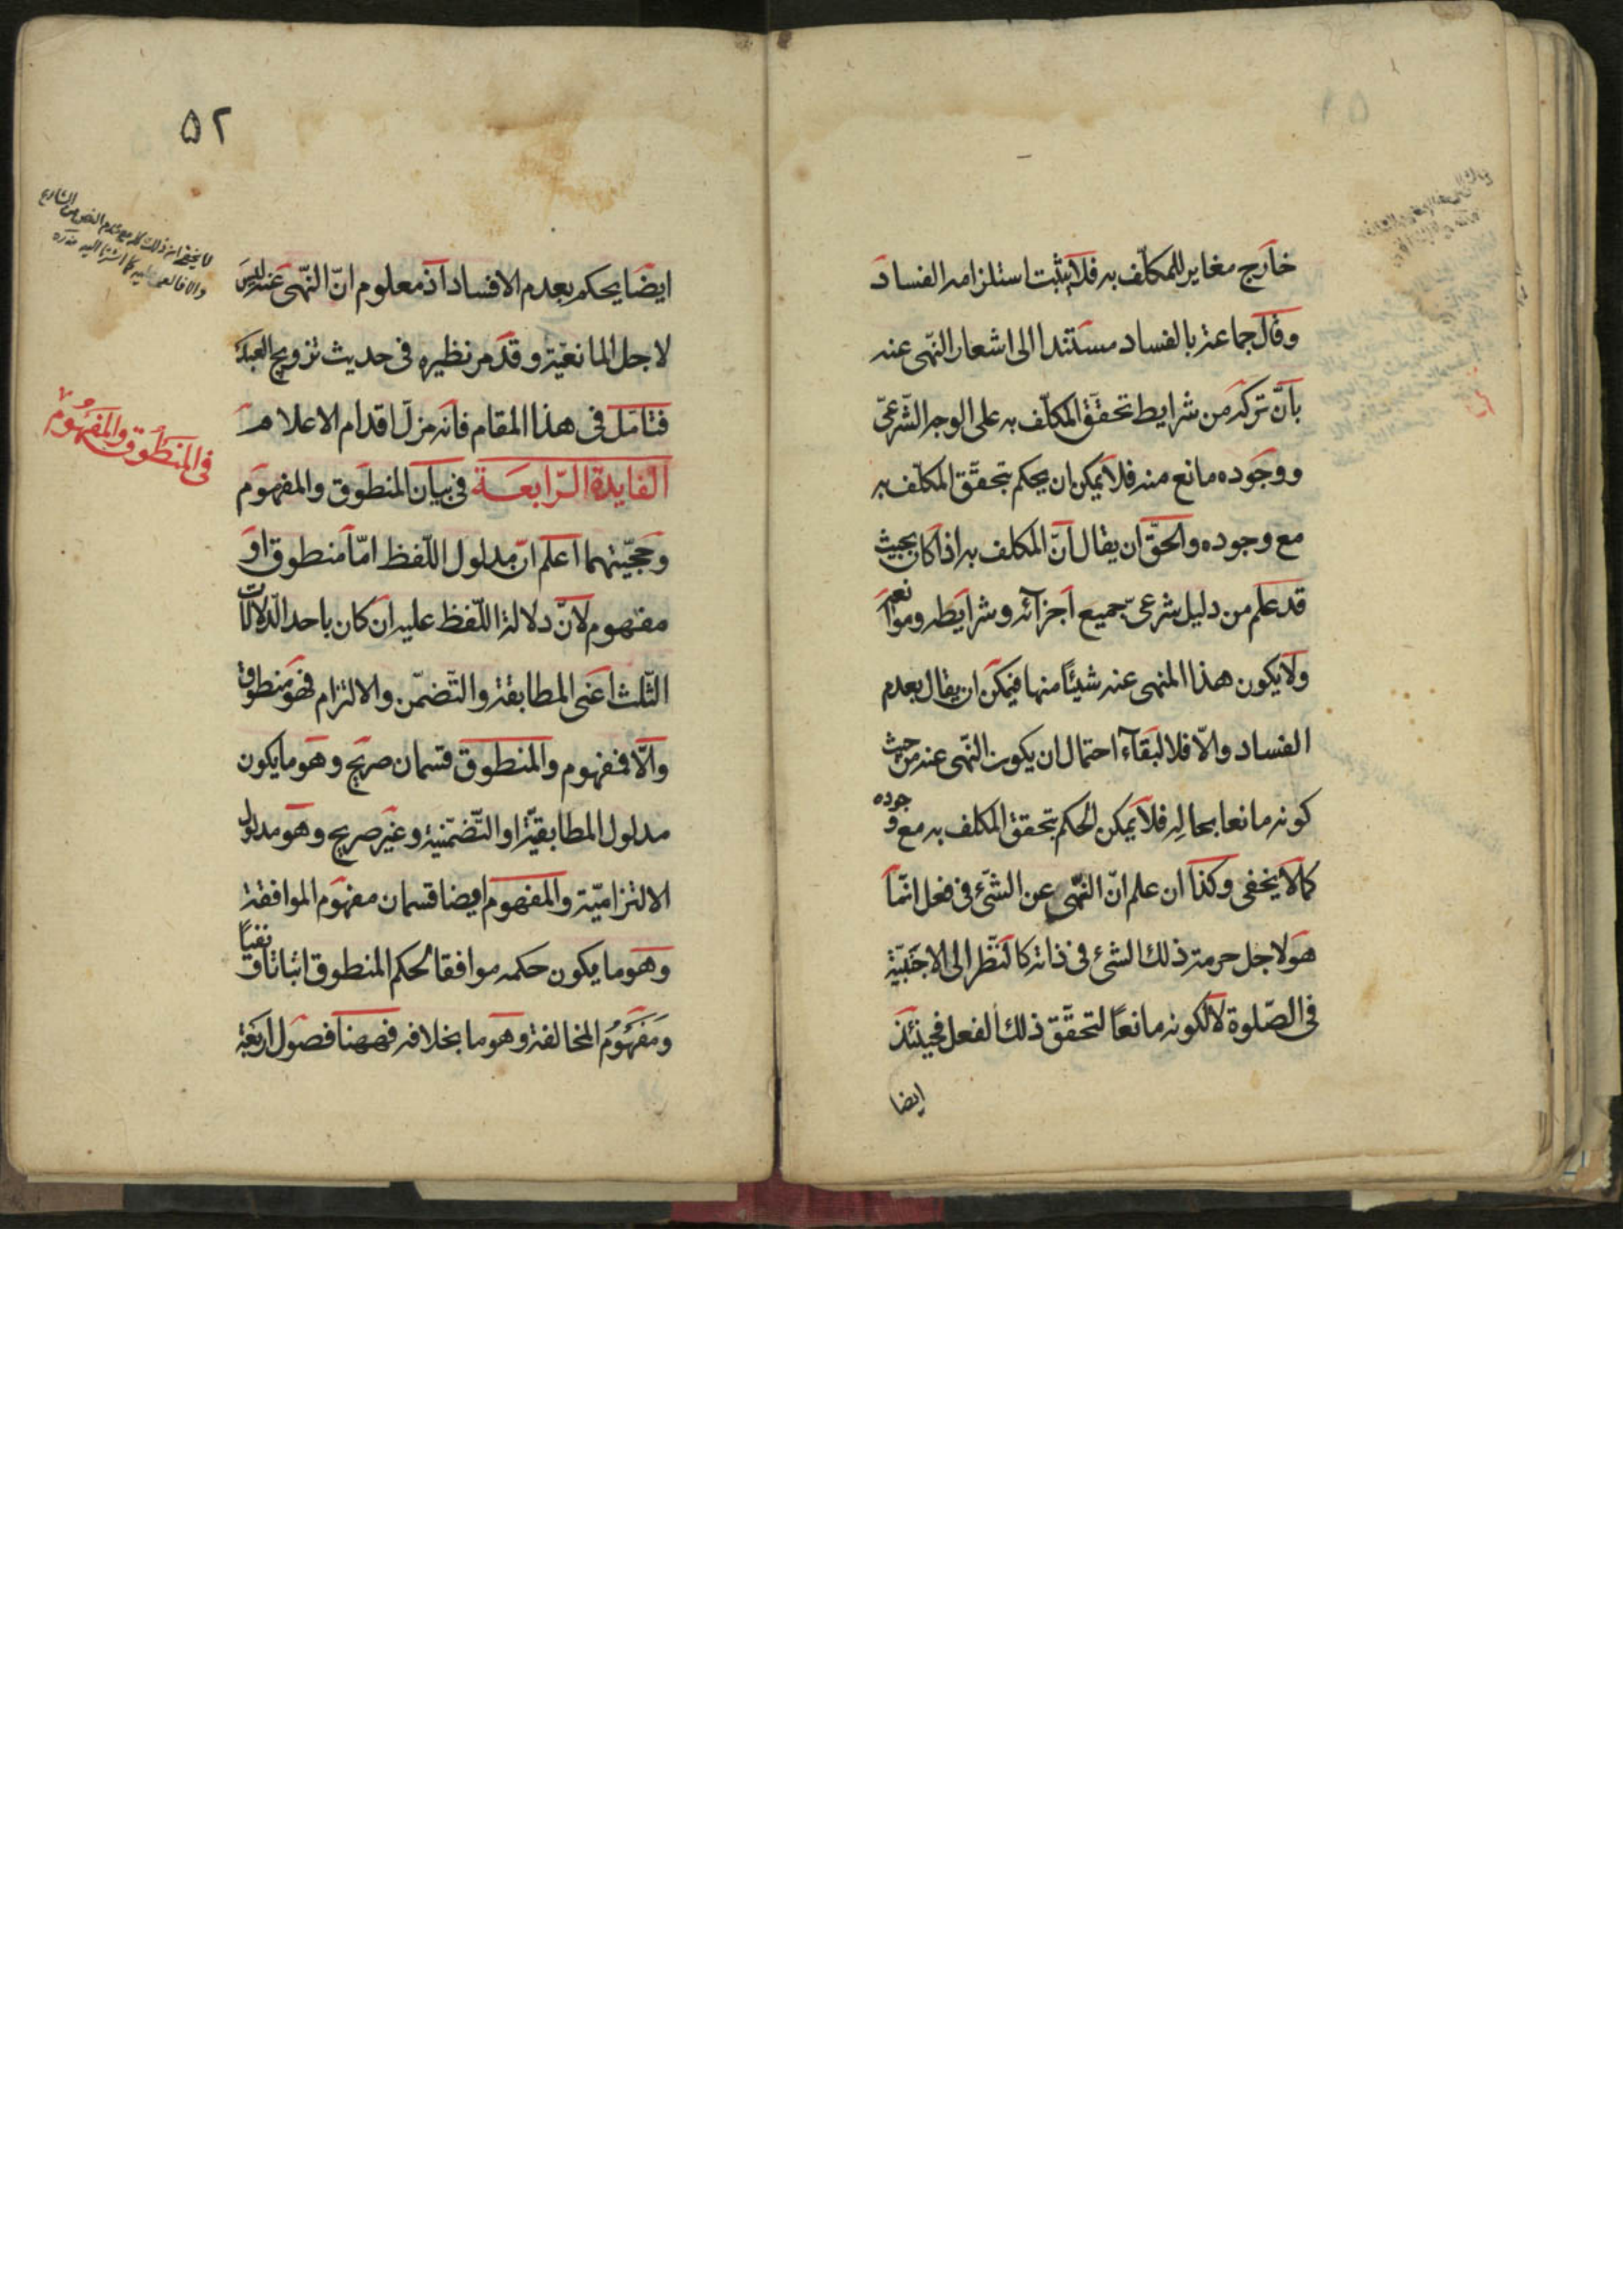 خارج مغاير للمكلّف به فلا يثبت استلزامه الفساد
وقال جماعة بالفساد مستندا الى اشعار النّهى عنه
بانّ تركه من شرايط تحقّق المكلّف به على الوجه الشّرعىّ
ووجوده مانع منه فلا يمكن ان يحكم بتحقّق المكلّف به
مع وجوده والحقّ ان يقال انّ المكلف به اذا كان بحيث
قد علم من دليل شرعىّ جميع اجزآئه وشرايطه وموانعه
ولا يكون هذا المنهى عنه شيئًا منها فيمكن ان يقال بعدم
الفساد والّا فلا لبقآء احتمال ان يكون النّهى عنه من حيث
كونه مانعا بحاله فلا يمكن الحكم بتحقق المكلف به مع وجوده
كما لا يخفى وكذا ان علم انّ النّهى عن الشّئ فى فعل انّما
هو لاجل حرمة ذلك الشئ فى ذاته كالنّظر الى الاجنبيّة
فى الصّلوة لا لكونه مانعًا لتحقّق ذلك الفعل فحينئذ
ايضا
۵۲
ايضا يحكم بعدم الافساد اذ معلوم انّ النّهى عنه ليس
لاجل المانعيّة وقد مر نظيره فى حديث تزويج العبد
فتامّل فى هذا المقام فانه مزلّ اقدام الاعلام
الفايدة الرّابعة فى بيان المنطوق والمفهوم
وحجّيتهما اعلم انّ مدلول اللّفظ امّا منطوق او
مفهوم لانّ دلالة اللّفظ عليه ان كان باحد الدّلالات
الثّلث اعنى المطابقة والتّضمّن والالتزام فهو منطوق
والّا فمفهوم والمنطوق قسمان صريح وهو ما يكون
مدلول المطابقيّة او التّضمّنية وغير صريح وهو مدلول
الالتزاميّة والمفهوم ايضا قسمان مفهوم الموافقة
وهو ما يكون حكمه موافقا لحكم المنطوق اثباتا او نفيًا
ومفهوم المخالفة وهو ما بخلافه فههنا فصول اربعة
لا يخفى ان ذلك كله مع عدم النص من الشارع
والا فالعمل عليه كما اشرنا اليه
فى المنطوق والمفهوم